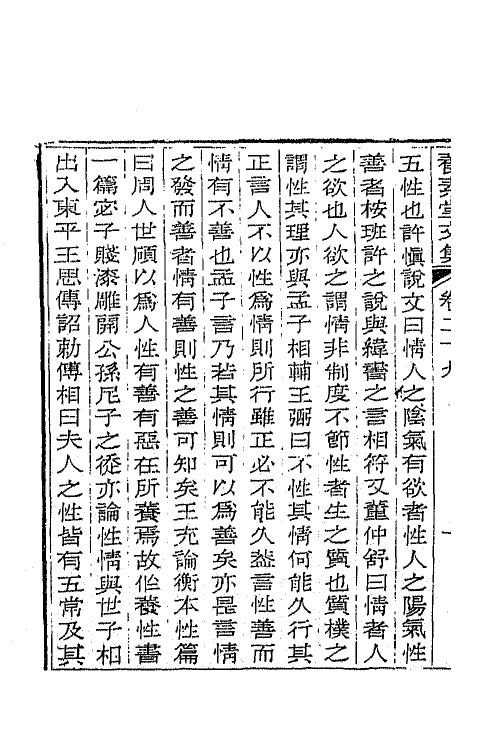 養素堂文集 卷二十九 一
五性也許愼說文曰情人之陰氣有欲者性人之陽氣性
善者桉班許之說與緯書之言相符又董仲舒曰情者人
之欲也人欲之謂情非制度不節性者生之質也質樸之
謂性其理亦與孟子相輔王弼曰不性其情何能久行其
正言人不以性爲情則所行雖正必不能久葢言性善而
情有不善也孟子言乃若其情則可以爲善矣亦是言情
之發而善者情有善則性之善可知矣王充論衡本性篇
曰周人世碩以爲人性有善有惡在所養焉故作養性書
一篇宓子賤漆雕開公孫尼子之徒亦論性情與世子相
出入東平王思傳詔勅傅相曰夫人之性皆有五常及其